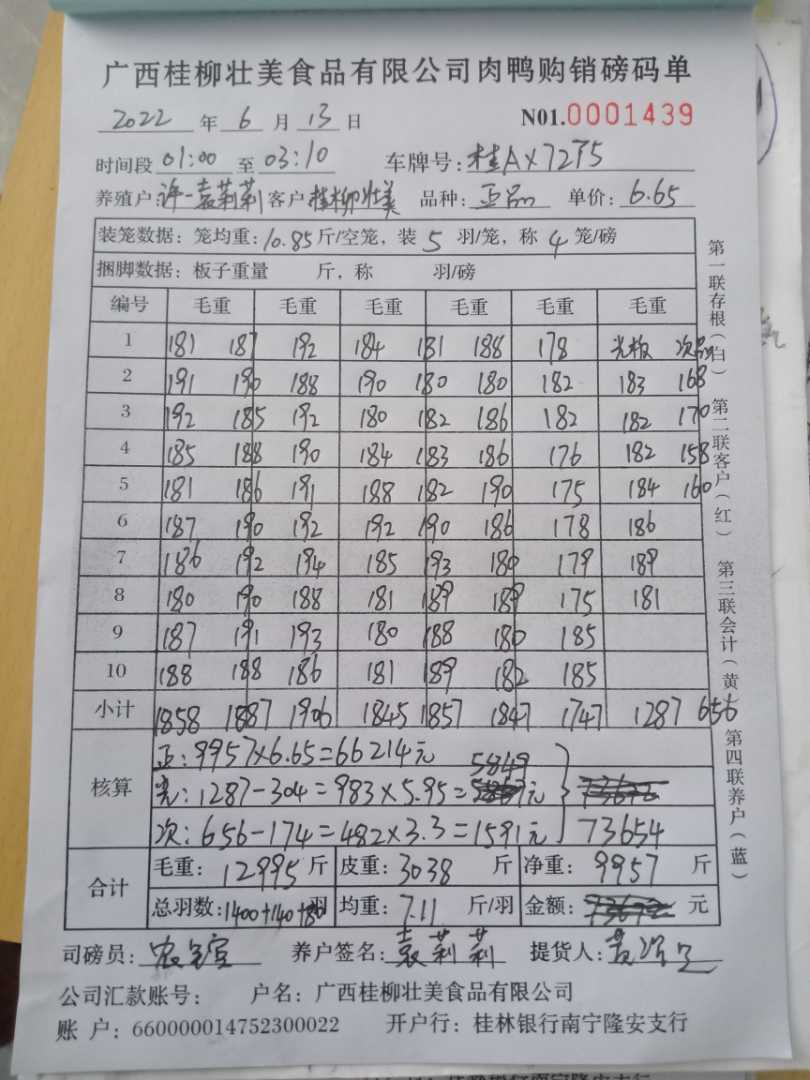 广西桂柳壮美食品有限公司肉鸭购销磅码单
2022 年 6 月 13 日 N01.0001439
时间段 01:00 至 03:10 车牌号:桂AX72T5
养殖户:许一袁莉莉 客户 桂柳壮美 品种: 正品 单价: 6.65
装笼数据: 笼均重: 10.85 斤/空笼, 装 5 羽/笼, 称 4 笼/磅
捆脚数据: 板子重量 斤, 称 羽/磅
编号 毛重 毛重 毛重 毛重 毛重 毛重
1 181 187 192 184 181 188 178 光板 次品
2 191 190 188 190 180 180 182 183 168
3 192 185 192 180 182 186 182 182 170
4 185 188 190 184 183 186 176 182 158
5 181 186 191 188 182 190 175 184 160
6 187 190 192 192 190 186 178 186
7 186 192 194 185 193 180 179 189
8 180 190 188 181 189 189 175 181
9 187 191 193 180 188 180 185
10 188 188 186 181 189 182 185
小计 1858 1887 1906 1845 1857 1847 1747 1287 656
核算 正: 9957×6.65=66214元
5849
亮: 1287-304=983×5.95= 元
次: 656-174=482×3.3=1591元 73654
合计 毛重: 12995 斤 皮重: 3038 斤 净重: 9957 斤
总羽数: 1400+140+80 羽 均重: 7.11 斤/羽 金额: 元
司磅员: 养户签名: 袁莉莉 提货人:
公司汇款账号: 户名: 广西桂柳壮美食品有限公司
账 户: 660000014752300022 开户行: 桂林银行南宁隆安支行
第一联存根(白) 第二联客户(红) 第三联会计(黄) 第四联养户(蓝)